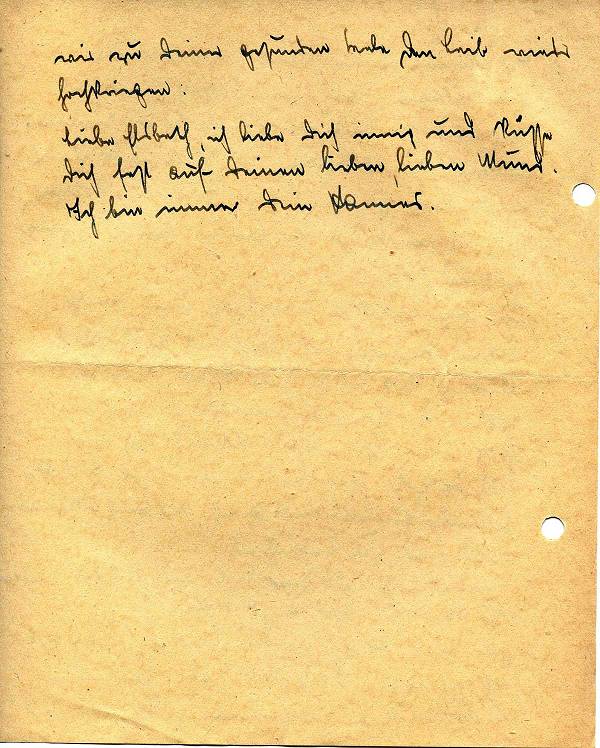 wir zu Deiner gesunden Seele den Leib wieder
hochkriegen.
Liebe Elsbeth, ich liebe Dich innig und küsse
Dich fest auf Deinen lieben, lieben Mund.
Ich bin immer Dein Hannes.